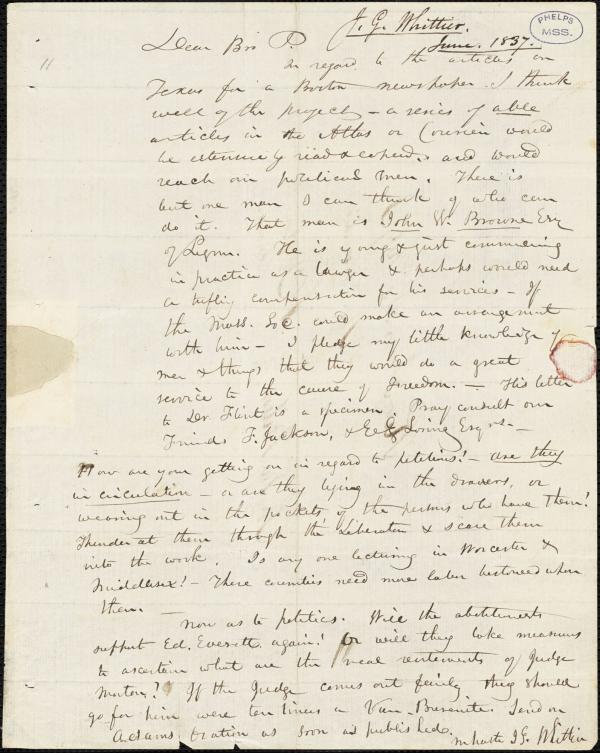 J. G. Whittier.
June. 1837.
PHELPS
MSS.
11
Dear Bro P.
In regard to the articles on
Texas for a Boston newspaper. I think
well of the project – a series of able
articles in the Atlas or Courier would
be extensively read & copied, and would
reach our political men. There is
but one man I can think of who can
do it. That man is John W. Browne Esq
of Lynn. He is young & just commencing
in practice as a lawyer & perhaps would need
a trifling compensation for his services – If
the Mass. Soc. could make an arrangement
with him – I pledge my little knowledge of
men & things that they would do a great
service to the cause of freedom. – His letter
to Dr Flint is a specimen. Pray consult our
Friends F. Jackson, & E G Loring Esqrs. –
How are you getting on in regard to petitions? – are they
in circulation – or are they lying in the drawers, or
wearing out in the pockets of the persons who have them?
Thunder at them through the Liberator & scare them
into the work. Is any one lecturing in Worcester &
Middlesex? – These counties need more labor bestowed upon
them. –
Now as to politics. Will the abolitionists
support Ed. Everett again? Or will they take measures
to ascertain what are the real sentiments of Judge
Morton? If the Judge comes out fairly they should
go for him were ten times a Van-Burenite. Send on
Adams Oration as soon as published.
In haste J G. Whittier